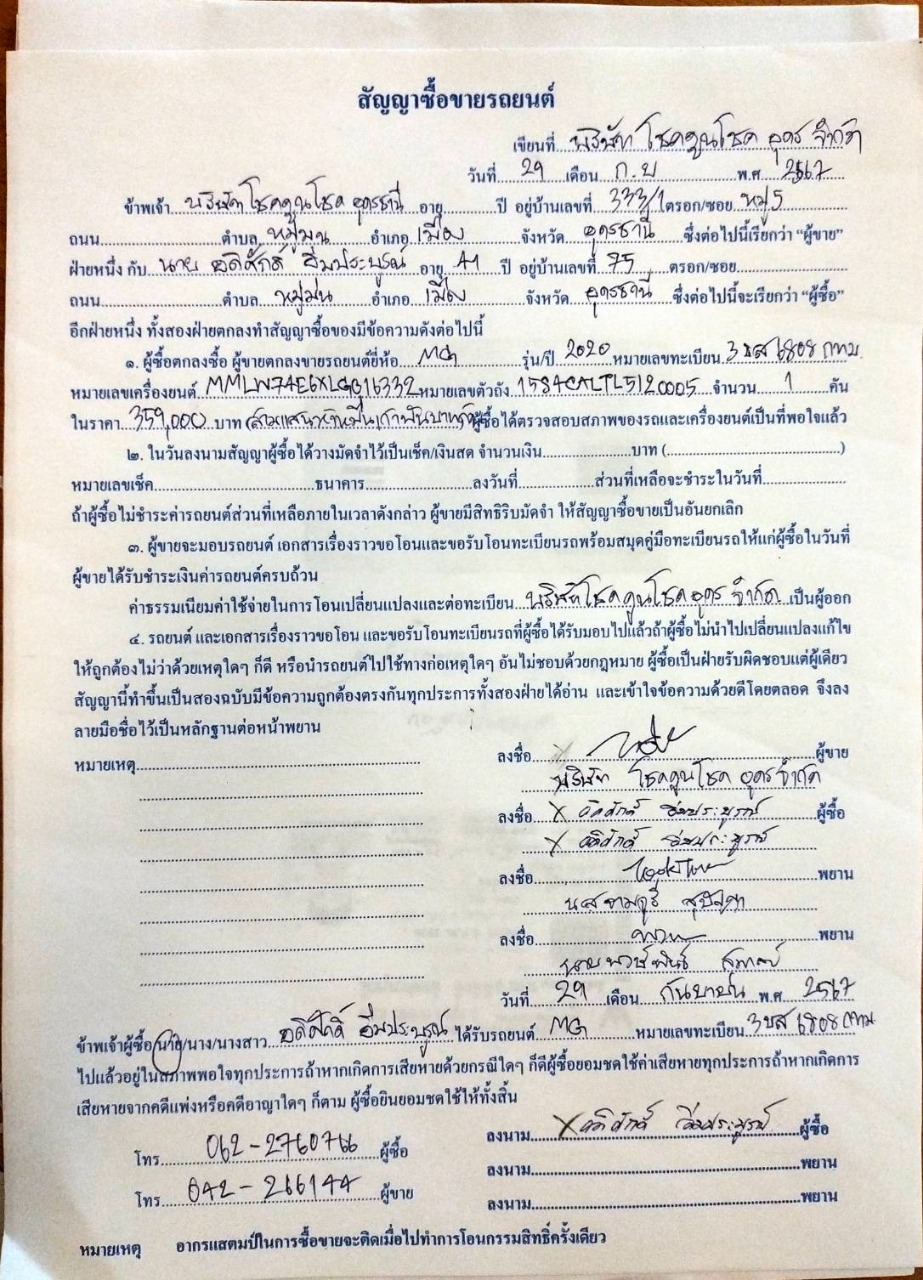 สัญญาซื้อขายรถยนต์
เขียนที่ บริษัท โชคคูนโชค อุดร จำกัด
วันที่ 29 เดือน ก.ย พ.ศ 2567
ข้าพเจ้า บริษัทโชคคูนโชค อุดรธานี อายุ ปี อยู่บ้านเลขที่ 333/1 ตรอก/ซอย หมู่5
ถนน ตำบล หมูม่น อำเภอ เมือง จังหวัด อุดรธานี ซึ่งต่อไปนี้เรียกว่า “ผู้ขาย”
ฝ่ายหนึ่ง กับ นาย อดิศักดิ์ อิ่มประบูรณ์ อายุ 41 ปี อยู่บ้านเลขที่ 75 ตรอก/ซอย
ถนน ตำบล หมูม่น อำเภอ เมือง จังหวัด อุดรธานี ซึ่งต่อไปนี้จะเรียกว่า “ผู้ซื้อ”
อีกฝ่ายหนึ่ง ทั้งสองฝ่ายตกลงทำสัญญาซื้อของมีข้อความดังต่อไปนี้
๑. ผู้ซื้อตกลงซื้อ ผู้ขายตกลงขายรถยนต์ยี่ห้อ MG รุ่น/ปี 2020 หมายเลขทะเบียน 3ขส 6808 กทม
หมายเลขเครื่องยนต์ MMLW74E6XLG016332 หมายเลขตัวถัง 15S4CALTL5120005 จำนวน 1 คัน
ในราคา 359,000 บาท (สามแสนห้าหมื่นเก้าพันบาทถ้วน) ผู้ซื้อได้ตรวจสอบสภาพของรถและเครื่องยนต์เป็นที่พอใจแล้ว
๒. ในวันลงนามสัญญาผู้ซื้อได้วางมัดจำไว้เป็นเช็ค/เงินสด จำนวนเงิน บาท ( )
หมายเลขเช็ค ธนาคาร ลงวันที่ ส่วนที่เหลือจะชำระในวันที่
ถ้าผู้ซื้อไม่ชำระค่ารถยนต์ส่วนที่เหลือภายในเวลาดังกล่าว ผู้ขายมีสิทธิริบมัดจำ ให้สัญญาซื้อขายเป็นอันยกเลิก
๓. ผู้ขายจะมอบรถยนต์ เอกสารเรื่องราวขอโอนและขอรับโอนทะเบียนรถพร้อมสมุดคู่มือทะเบียนรถให้แก่ผู้ซื้อในวันที่
ผู้ขายได้รับชำระเงินค่ารถยนต์ครบถ้วน
ค่าธรรมเนียมค่าใช้จ่ายในการโอนเปลี่ยนแปลงและต่อทะเบียน บริษัทโชคคูนโชคอุดร จำกัด เป็นผู้ออก
๔. รถยนต์ และเอกสารเรื่องราวขอโอน และขอรับโอนทะเบียนรถที่ผู้ซื้อได้รับมอบไปแล้วถ้าผู้ซื้อไม่นำไปเปลี่ยนแปลงแก้ไข
ให้ถูกต้องไม่ว่าด้วยเหตุใดๆ ก็ดี หรือนำรถยนต์ไปใช้ทางก่อเหตุใดๆ อันไม่ชอบด้วยกฎหมาย ผู้ซื้อเป็นฝ่ายรับผิดชอบแต่ผู้เดียว
สัญญานี้ทำขึ้นเป็นสองฉบับมีข้อความถูกต้องตรงกันทุกประการทั้งสองฝ่ายได้อ่าน และเข้าใจข้อความด้วยดีโดยตลอด จึงลง
ลายมือชื่อไว้เป็นหลักฐานต่อหน้าพยาน
หมายเหตุ
ลงชื่อ x ผู้ขาย
บริษัท โชคคูนโชค อุดร จำกัด
ลงชื่อ x อดิศักดิ์ อิ่มประบูรณ์ ผู้ซื้อ
x อดิศักดิ์ อิ่มประบูรณ์
ลงชื่อ พยาน
นส
ลงชื่อ พยาน
นาย
วันที่ 29 เดือน กันยายน พ.ศ 2567
ข้าพเจ้าผู้ซื้อ นาย/นาง/นางสาว อดิศักดิ์ อิ่มประบูรณ์ ได้รับรถยนต์ MG หมายเลขทะเบียน 3ขส 6808 กทม
ไปแล้วอยู่ในสภาพพอใจทุกประการถ้าหากเกิดการเสียหายด้วยกรณีใดๆ ก็ดีผู้ซื้อยอมชดใช้ค่าเสียหายทุกประการถ้าหากเกิดการ
เสียหายจากคดีแพ่งหรือคดีอาญาใดๆ ก็ตาม ผู้ซื้อยินยอมชดใช้ให้ทั้งสิ้น
ลงนาม x อดิศักดิ์ อิ่มประบูรณ์ ผู้ซื้อ
โทร 062-2760766 ผู้ซื้อ
ลงนาม พยาน
โทร 042-266144 ผู้ขาย
ลงนาม พยาน
หมายเหตุ อากรแสตมป์ในการซื้อขายจะติดเมื่อไปทำการโอนกรรมสิทธิ์ครั้งเดียว